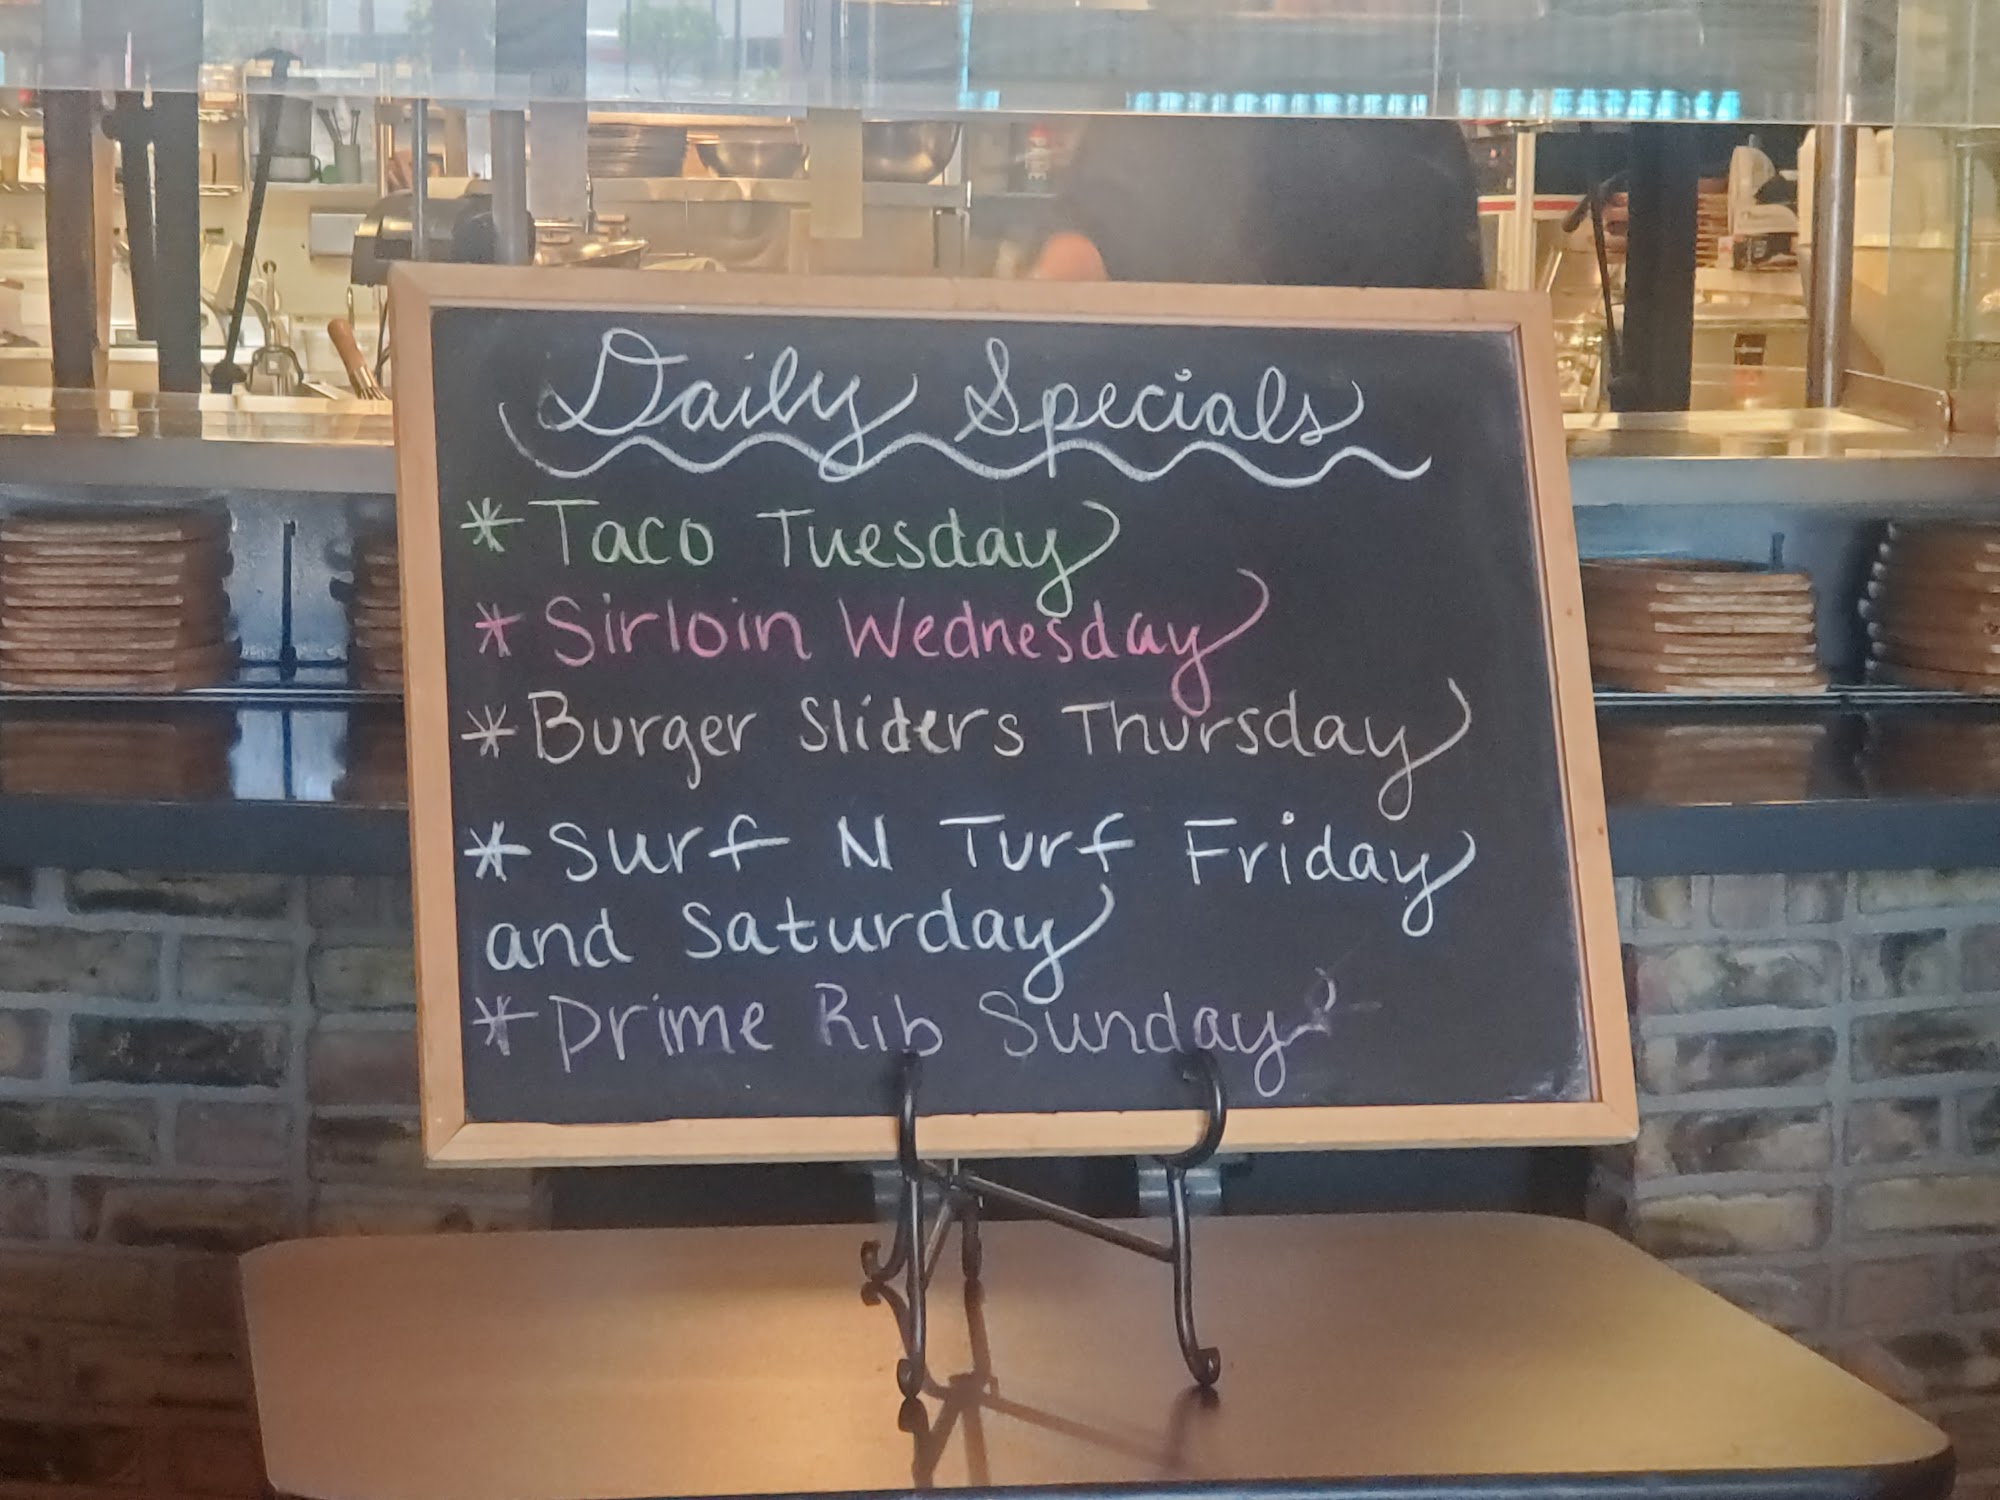 Daily Specials
* Taco Tuesday
* Sirloin Wednesday
* Burger Sliders Thursday
* Surf N Turf Friday
and Saturday
* Prime Rib Sunday